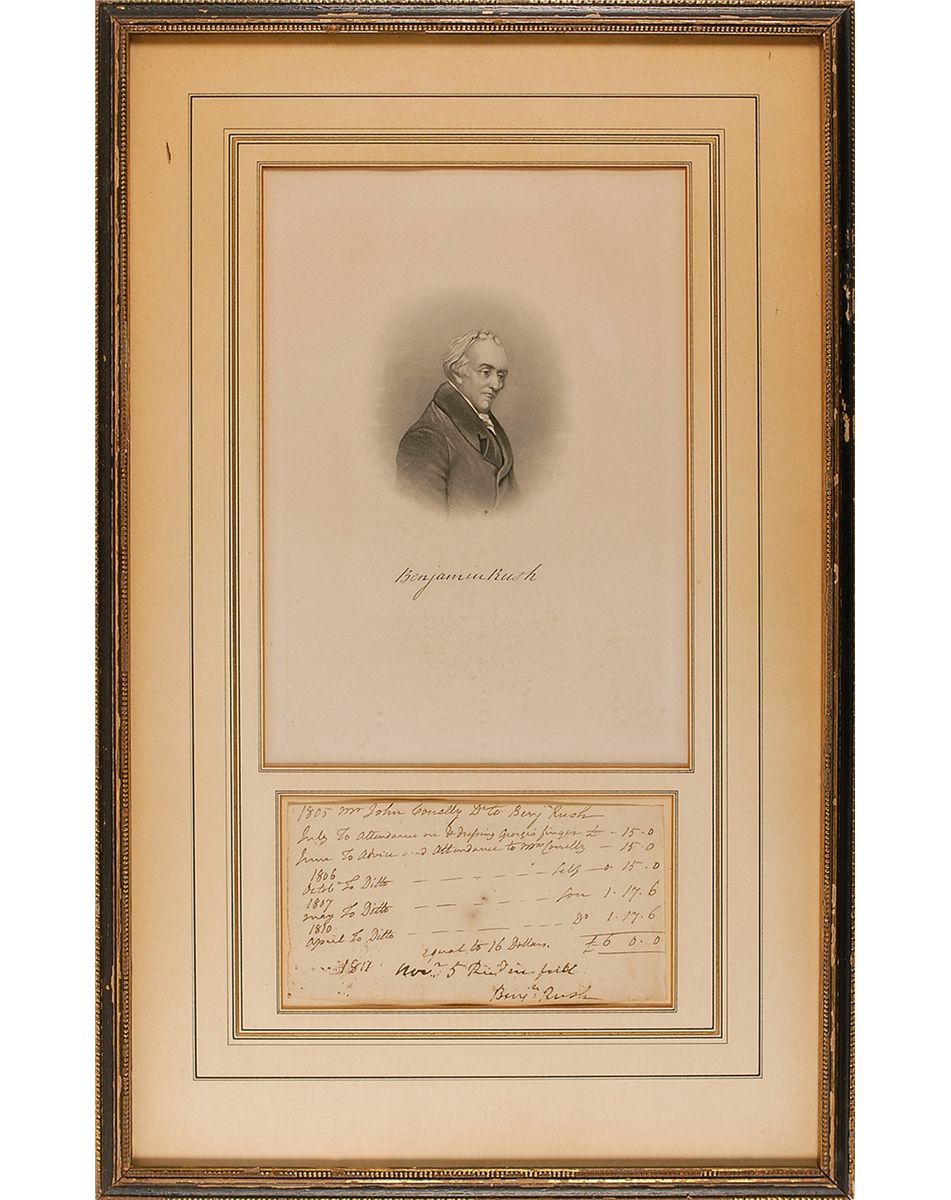 Benjamin Rush
1805 Mr John Conelly Dr to Benjn Rush
July To Attendance on & dressing Georges finger £ - 15-0
June To Advice and Attendance to Mrs Conelly - 15-0
1806
Octobr To Ditto - - - - - self - 0-15-0
1807
may To Ditto - - - - - son 1-17-6
1810
April To Ditto - - - - - Do 1-17-6
equal to 16 Dollars. £6 0-0
1811 Novr 5 Recd in full
Benjn Rush